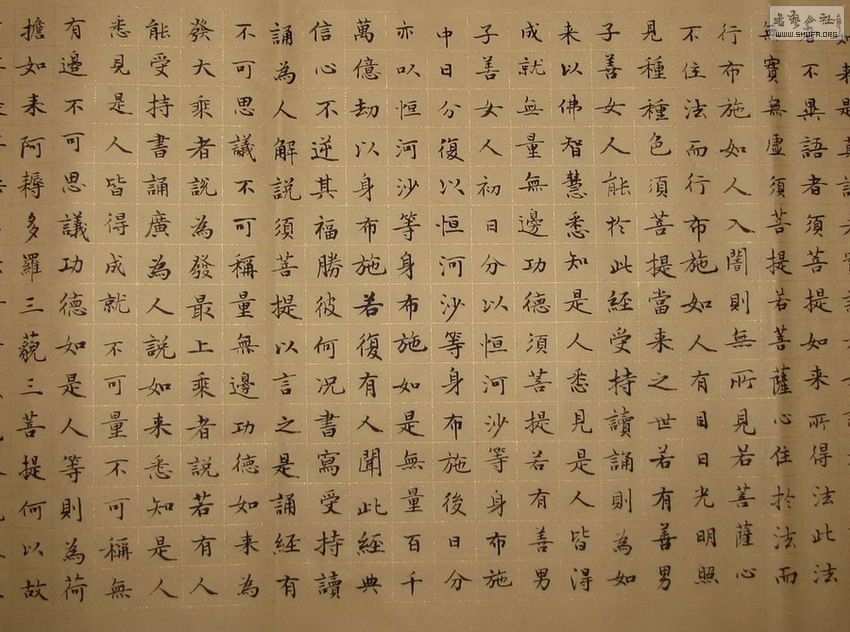 不異語者須菩提如來所得法此法
無實無虛須菩提若菩薩心住於法而
行布施如人入闇則無所見若菩薩心
不住法而行布施如人有目日光明照
見種種色須菩提當來之世若有善男
子善女人能於此經受持讀誦則為如
來以佛智慧悉知是人悉見是人皆得
成就無量無邊功德須菩提若有善男
子善女人初日分以恒河沙等身布施
中日分復以恒河沙等身布施後日分
亦以恒河沙等身布施如是無量百千
萬億劫以身布施若復有人聞此經典
信心不逆其福勝彼何況書寫受持讀
誦為人解說須菩提以言之是誦經有
不可思議不可稱量無邊功德如來為
發大乘者說為發最上乘者說若有人
能受持書誦廣為人說如來悉知是人
悉見是人皆得成就不可量不可稱無
有邊不可思議功德如是人等則為荷
擔如來阿耨多羅三藐三菩提何以故
書藝公社
WWW.SHUFA.ORG